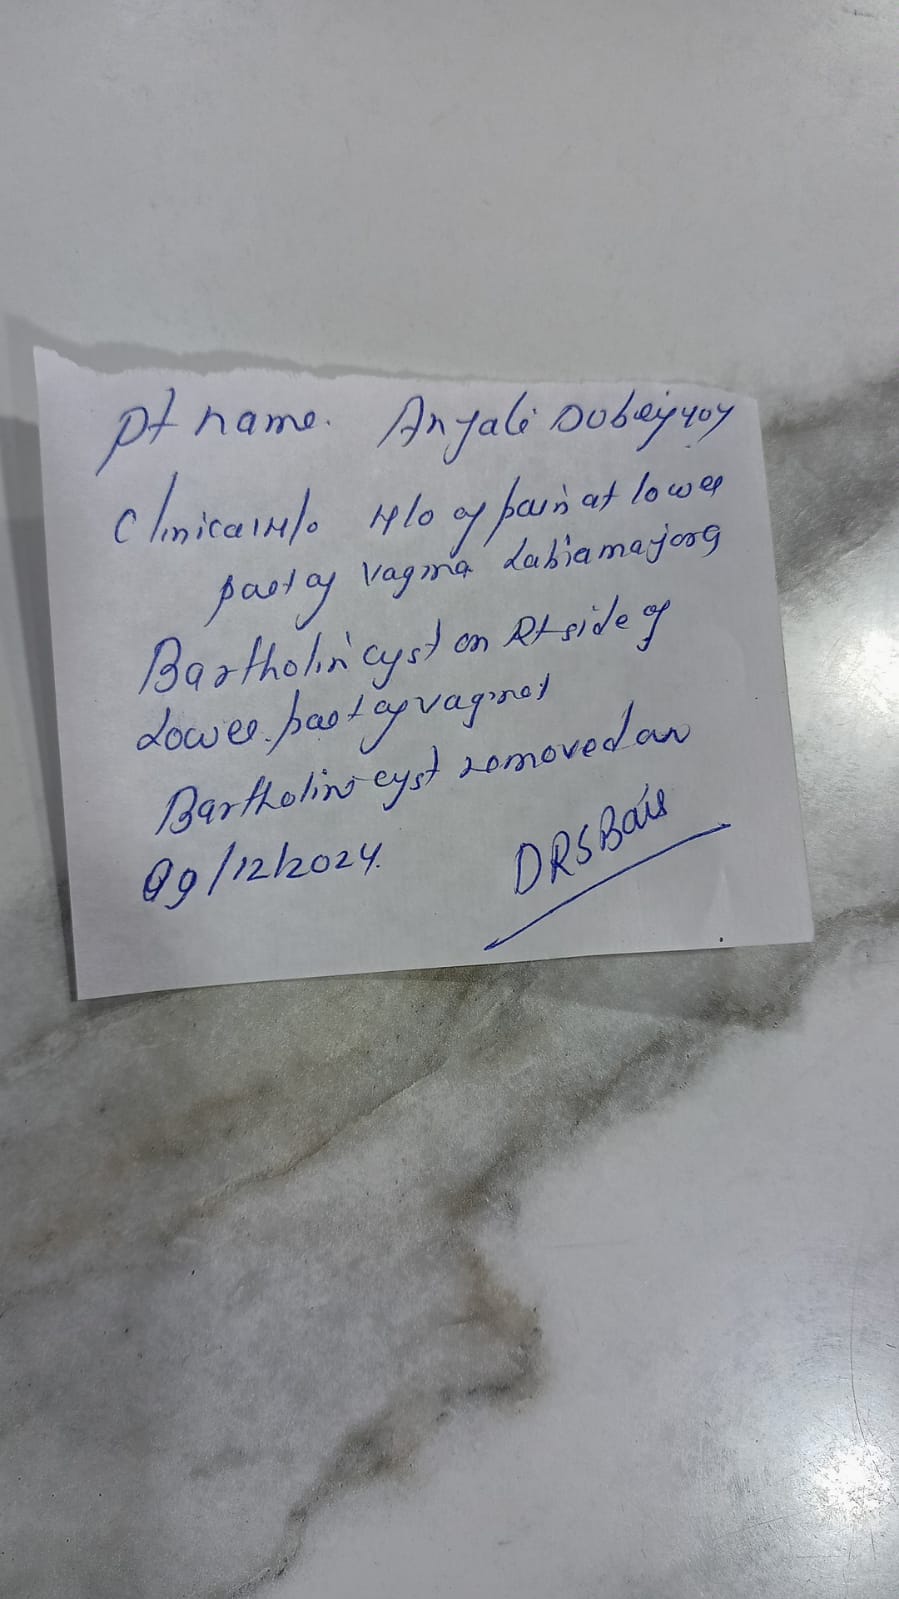 pt name. Anjali Dubey 40y
Clinical H/o H/o of pain at lower
part of vagina Labia majora
Bartholin cyst on Rt side of
Lower part of vagina
Bartholin cyst removed on
09/12/2024.
DR S Bais